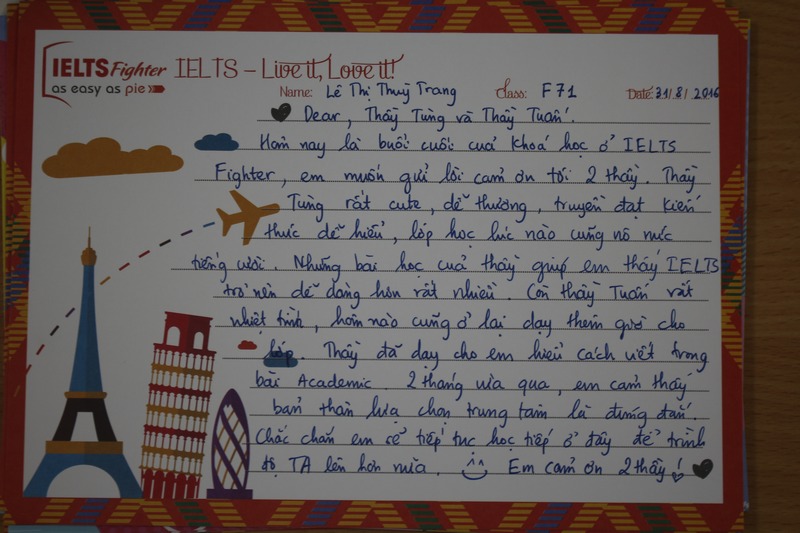 IELTS Fighter
as easy as pie
IELTS – Live it, Love it!
Name: Lê Thị Thuỳ Trang Class: F71 Date: 31/8/2016
Dear, Thầy Tùng và Thầy Tuấn.
Hôm nay là buổi cuối của khoá học ở IELTS
Fighter, em muốn gửi lời cảm ơn tới 2 thầy. Thầy
Tùng rất cute, dễ thương, truyền đạt kiến
thức dễ hiểu, lớp học lúc nào cũng nô nức
tiếng cười. Những bài học của thầy giúp em thấy IELTS
trở nên dễ dàng hơn rất nhiều. Còn thầy Tuấn rất
nhiệt tình, hôm nào cũng ở lại dạy thêm giờ cho
lớp. Thầy đã dạy cho em hiểu cách viết trong
bài Academic. 2 tháng vừa qua, em cảm thấy
bản thân lựa chọn trung tâm là đúng đắn.
Chắc chắn em sẽ tiếp tục học tiếp ở đây để trình
độ TA lên hơn nữa. ^^ Em cảm ơn 2 thầy!